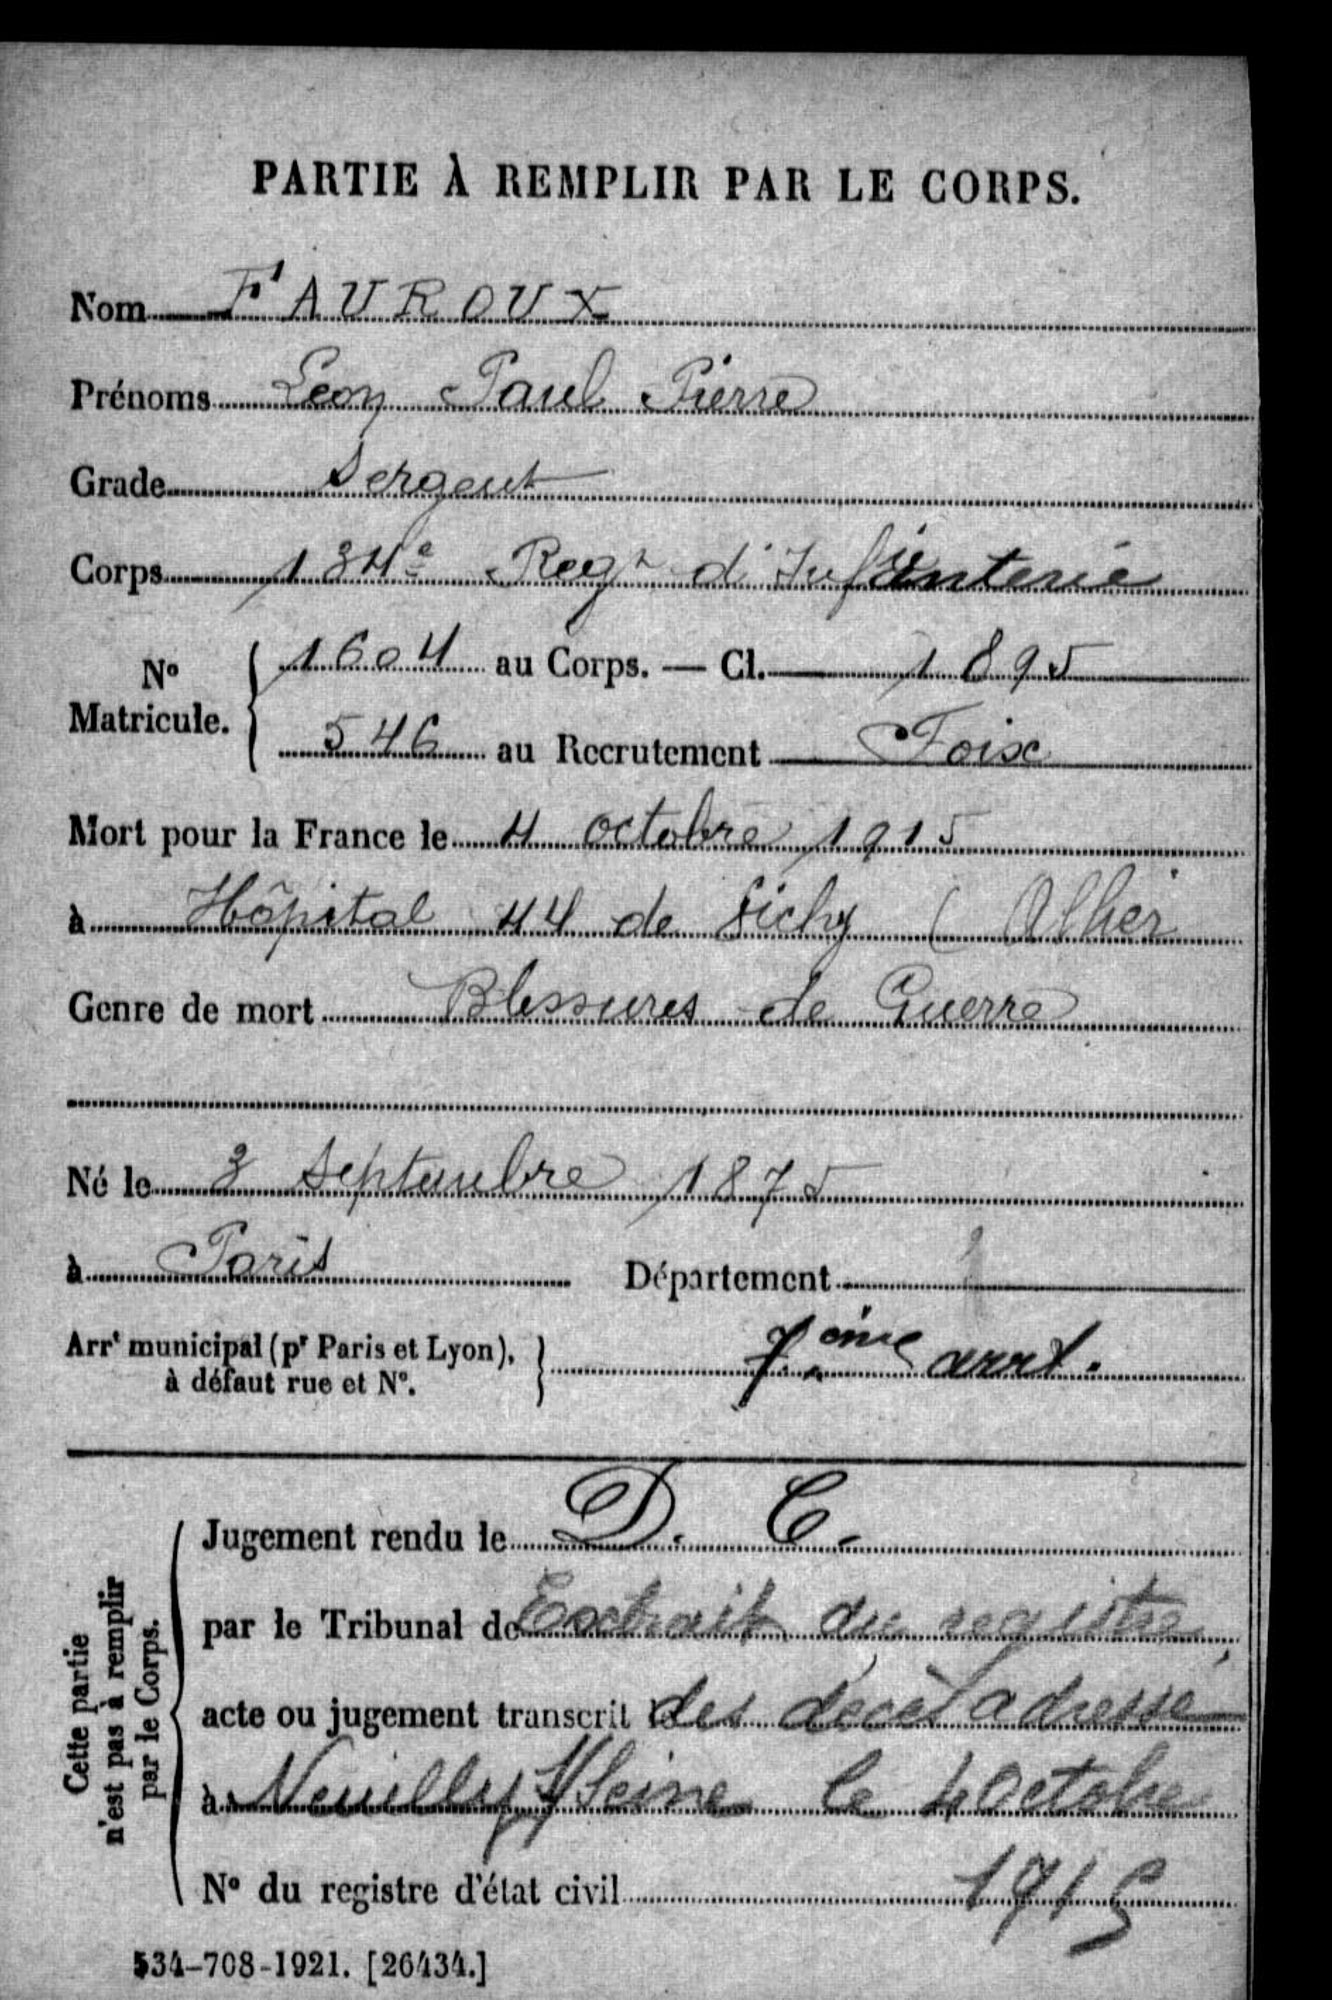 PARTIE À REMPLIR PAR LE CORPS.
Nom FAUROUX
Prénoms Léon Paul Pierre
Grade Sergent
Corps 134e Regt d'Infanterie
No Matricule. 1604 au Corps. — Cl. 1895
546 au Recrutement Foix
Mort pour la France le 4 octobre 1915
à Hôpital 44 de Vichy (Allier
Genre de mort Blessures de Guerre
Né le 3 Septembre 1875
à Paris Département
Arrt municipal (pr Paris et Lyon), à défaut rue et No. 7.ème arrt.
Cette partie n'est pas à remplir par le Corps.
Jugement rendu le D. C.
par le Tribunal de Extrait du registre
acte ou jugement transcrit le des décès adressé
à Neuilly s/Seine le 4 Octobre
No du registre d'état civil 1915
534-708-1921. [26434.]